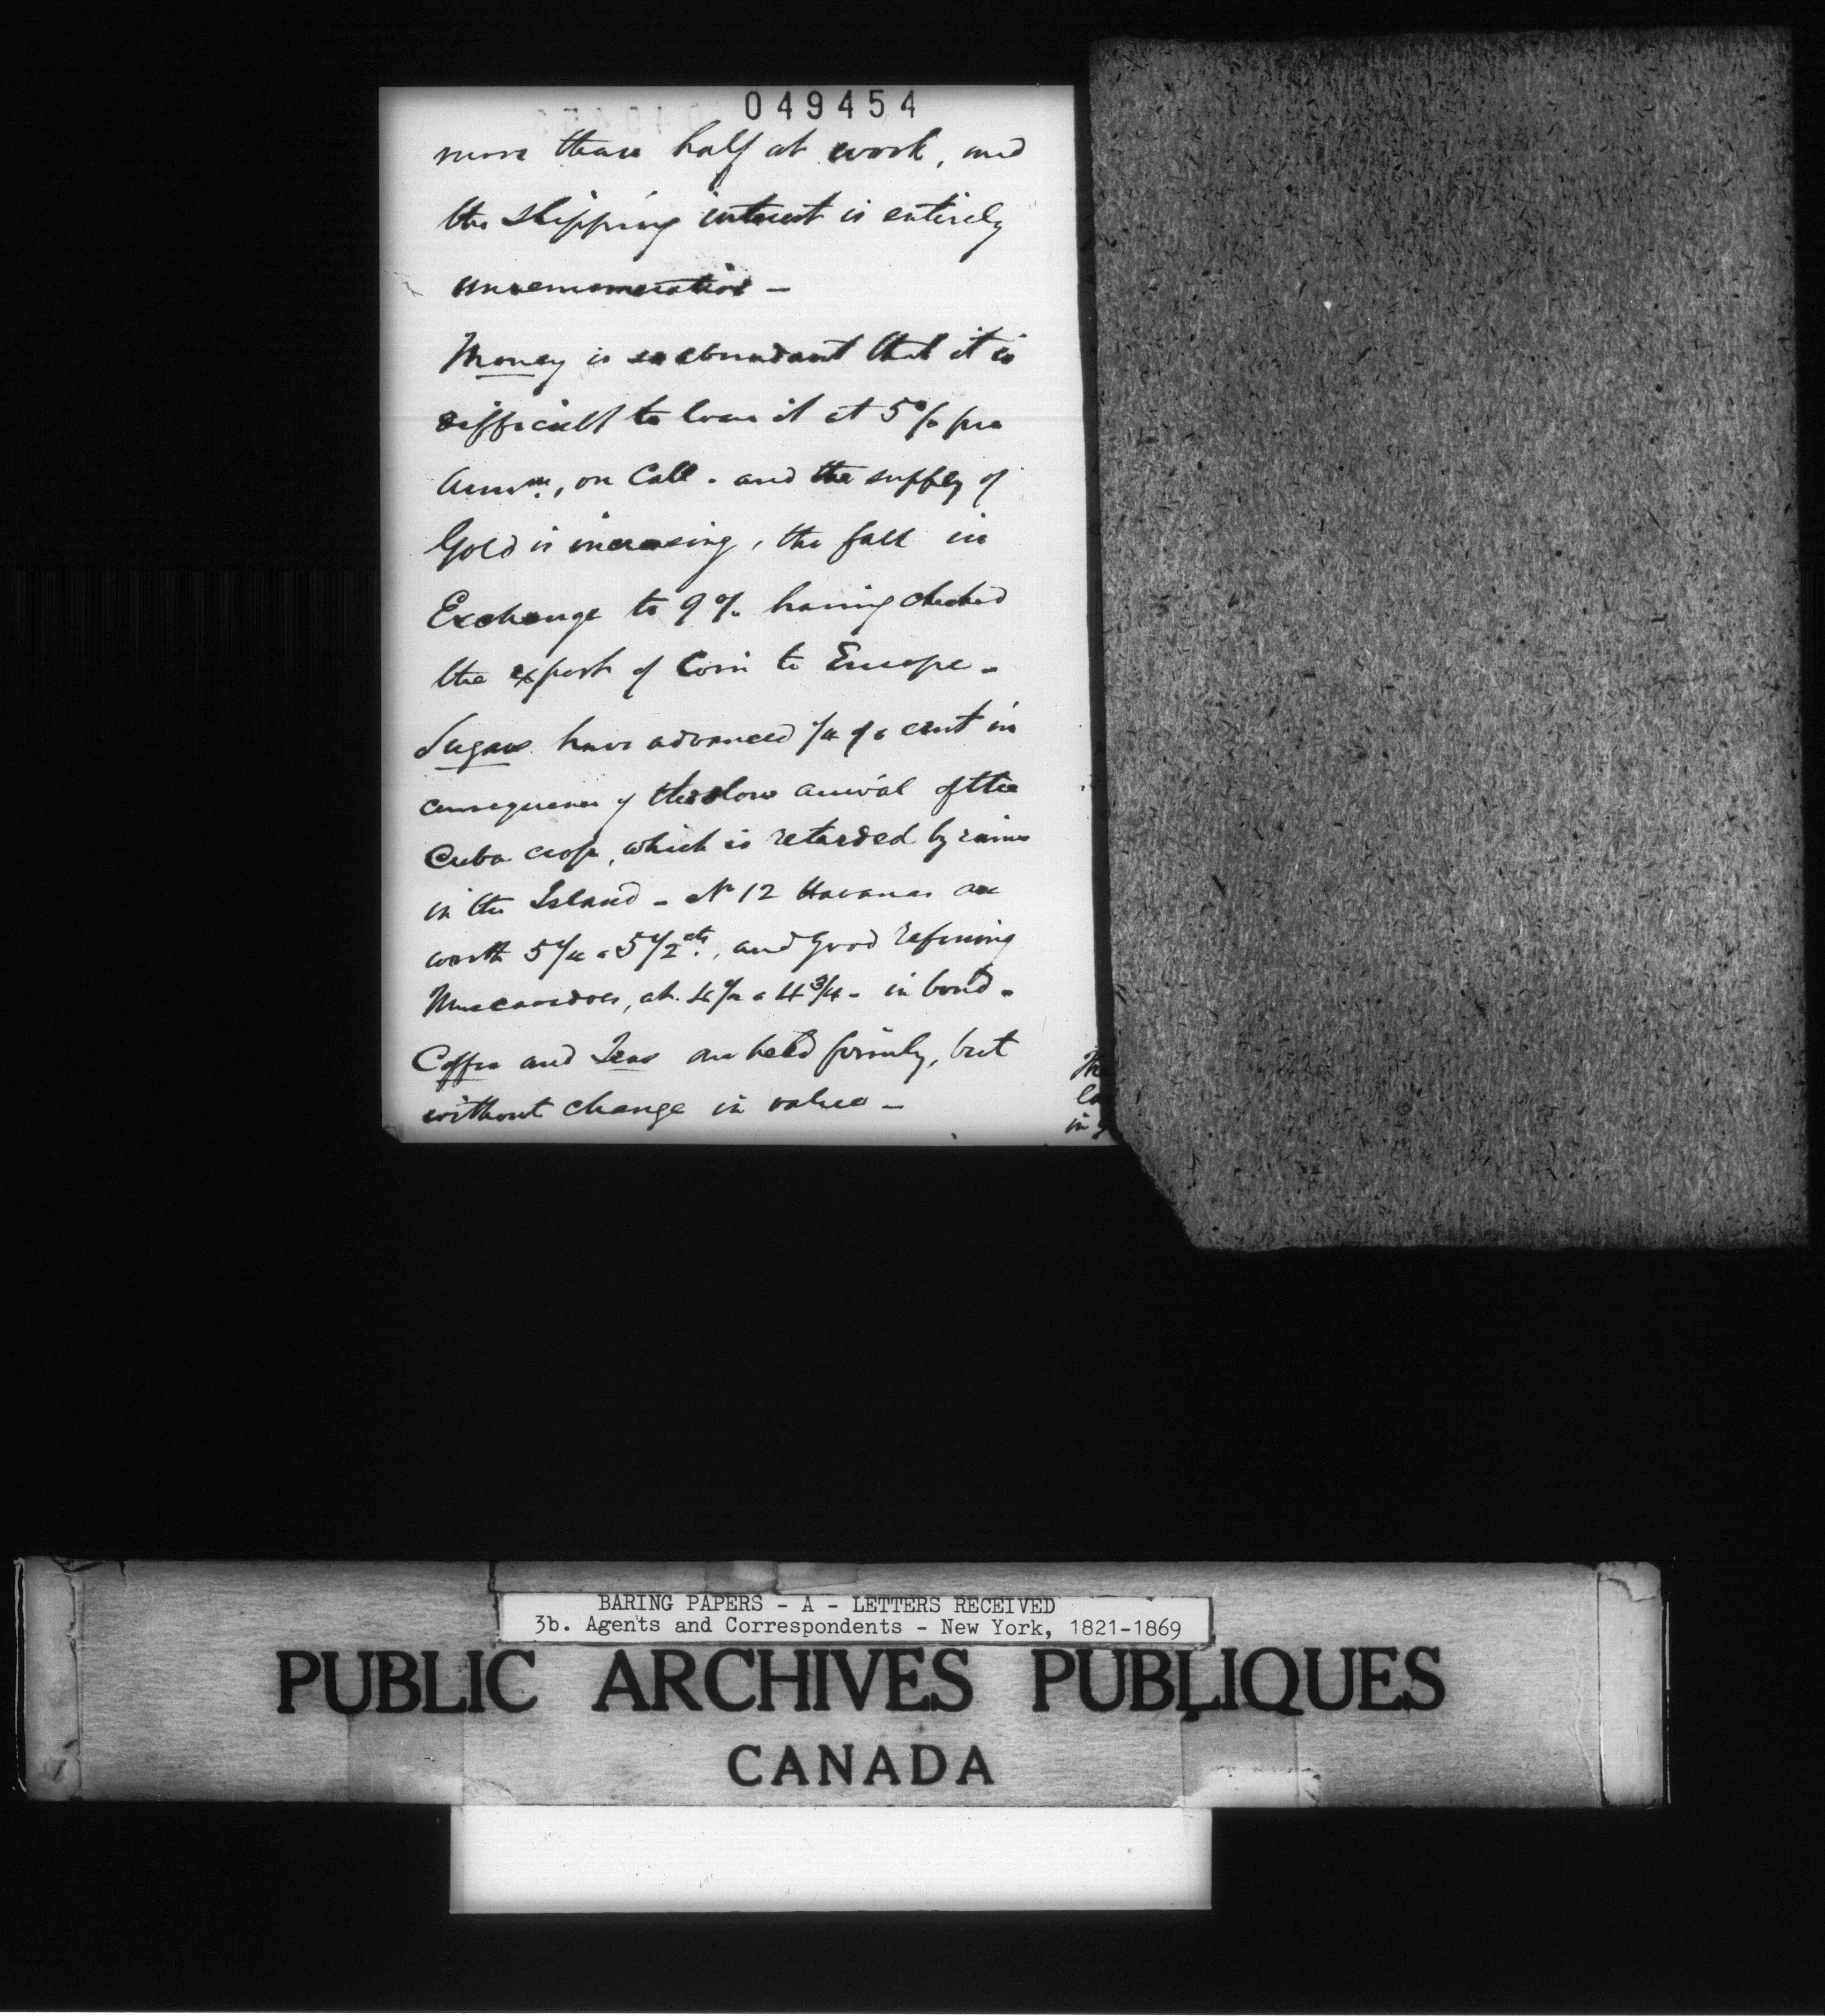 049454
more than half at work, and
the shipping interest is entirely
unremunerative -
Money is so abundant that it is
difficult to loan it at 5 % per
Annm., on Call - and the supply of
Gold is increasing, the fall in
Exchange to 9 %. having checked
the export of Coin to Europe -
Sugars have advanced 1/4 of a cent in
consequence of the slow arrival of the
Cuba crop, which is retarded by rains
in the Island - No 12 Havanas are
worth 5 1/4 a 5 1/2 cts., and good refining
Muscovadoes, at 4 1/2 a 4 3/4 - in bond -
Coffee and Teas are held firmly, but
without change in value -
BARING PAPERS - A - LETTERS RECEIVED
3b. Agents and Correspondents - New York, 1821-1869
PUBLIC ARCHIVES PUBLIQUES
CANADA